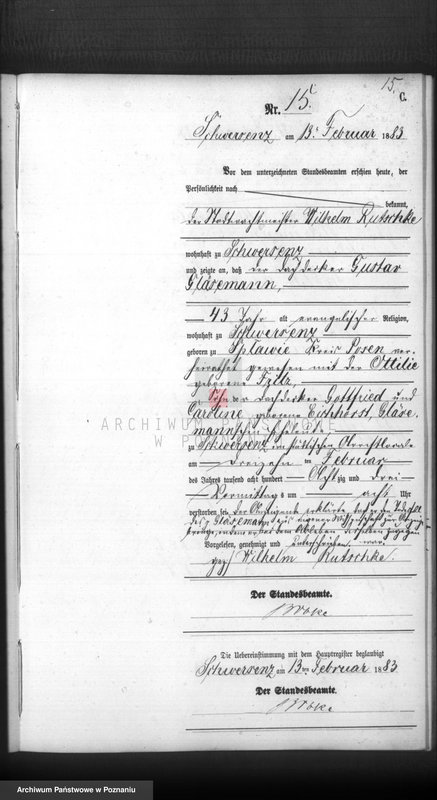 15.
C.
Nr. 15.
Schwersenz am 13. Februar 1883
Vor dem unterzeichneten Standesbeamten erschien heute, der
Persönlichkeit nach
bekannt,
der Stadtwachtmeister Wilhelm Rutschke
wohnhaft zu Schwersenz
und zeigte an, daß der Dachdecker Gustav
Gläsemann,
43 Jahr alt evangelischer Religion,
wohnhaft zu Schwersenz
geboren zu Splawie Kreis Posen ver-
heirathet gewesen mit der Ottilie
geborene
Sohn der Dachdecker Gottfried und
Caroline geborene Eichhorst, Gläse-
mannschen Eheleute
ARCHIWUM PAŃSTWOWE
W POZNANIU
zu Schwersenz im städtischen
am dreizehn ten Februar
des Jahres tausend acht hundert achtzig und drei
Vormittags um acht Uhr
verstorben sei. Der Anzeigende erklärte, daß er
Gläsemann aus eigener Wissenschaft
Vorgelesen, genehmigt und unterschrieben
gez. Wilhelm Rutschke
Der Standesbeamte.
Die Uebereinstimmung mit dem Hauptregister beglaubigt
Schwersenz am 13ten Februar 1883
Der Standesbeamte.
Archiwum Państwowe w Poznaniu